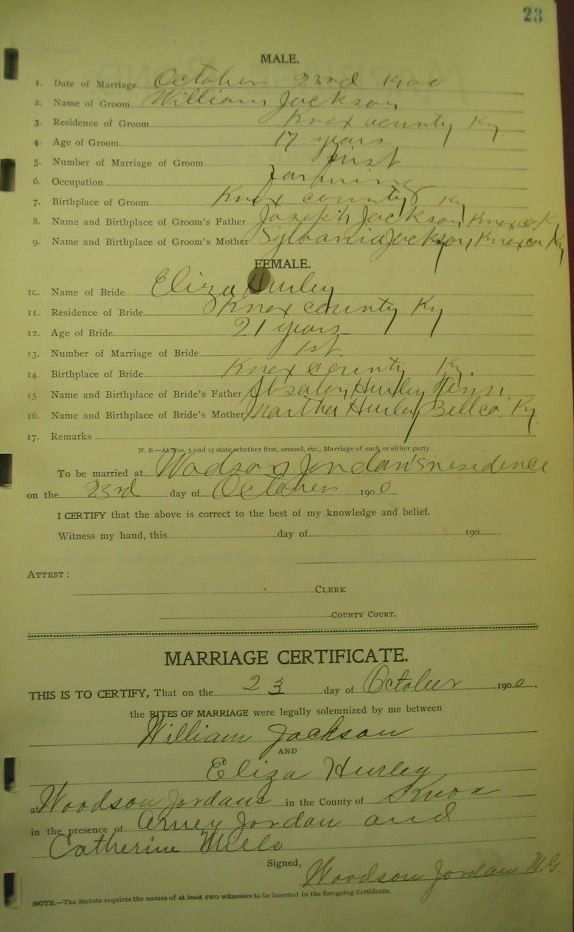 23
MALE.
1. Date of Marriage October 23rd 1900
2. Name of Groom William Jackson
3. Residence of Groom Knox county Ky
4. Age of Groom 17 years
5. Number of Marriage of Groom first
6. Occupation farming
7. Birthplace of Groom Knox county Ky
8. Name and Birthplace of Groom's Father Joseph Jackson Knox co Ky
9. Name and Birthplace of Groom's Mother Sylvania Jackson Knox co Ky
FEMALE.
10. Name of Bride Eliza Hurley
11. Residence of Bride Knox county Ky
12. Age of Bride 21 years
13. Number of Marriage of Bride 1st.
14. Birthplace of Bride Knox county Ky.
15. Name and Birthplace of Bride's Father Hurley Tenn.
16. Name and Birthplace of Bride's Mother Martha Hurley Bell co. Ky
17. Remarks
N. B.—At Nos. 5 and 13 state whether first, second, etc., Marriage of each or either party.
To be married at Wodson Jordan's residence
on the 23rd day of October 1900
I CERTIFY that the above is correct to the best of my knowledge and belief.
Witness my hand, this day of 190
ATTEST:
CLERK
COUNTY COURT.
MARRIAGE CERTIFICATE.
THIS IS TO CERTIFY, That on the 23 day of October 1900,
the RITES OF MARRIAGE were legally solemnized by me between
William Jackson
AND
Eliza Hurley
at Woodson Jordans in the County of Knox
in the presence of Jordan and
Catherine Mills
Signed,
Woodson Jordan M.G
NOTE.—The Statute requires the names of at least two witnesses to be inserted in the foregoing Certificate.